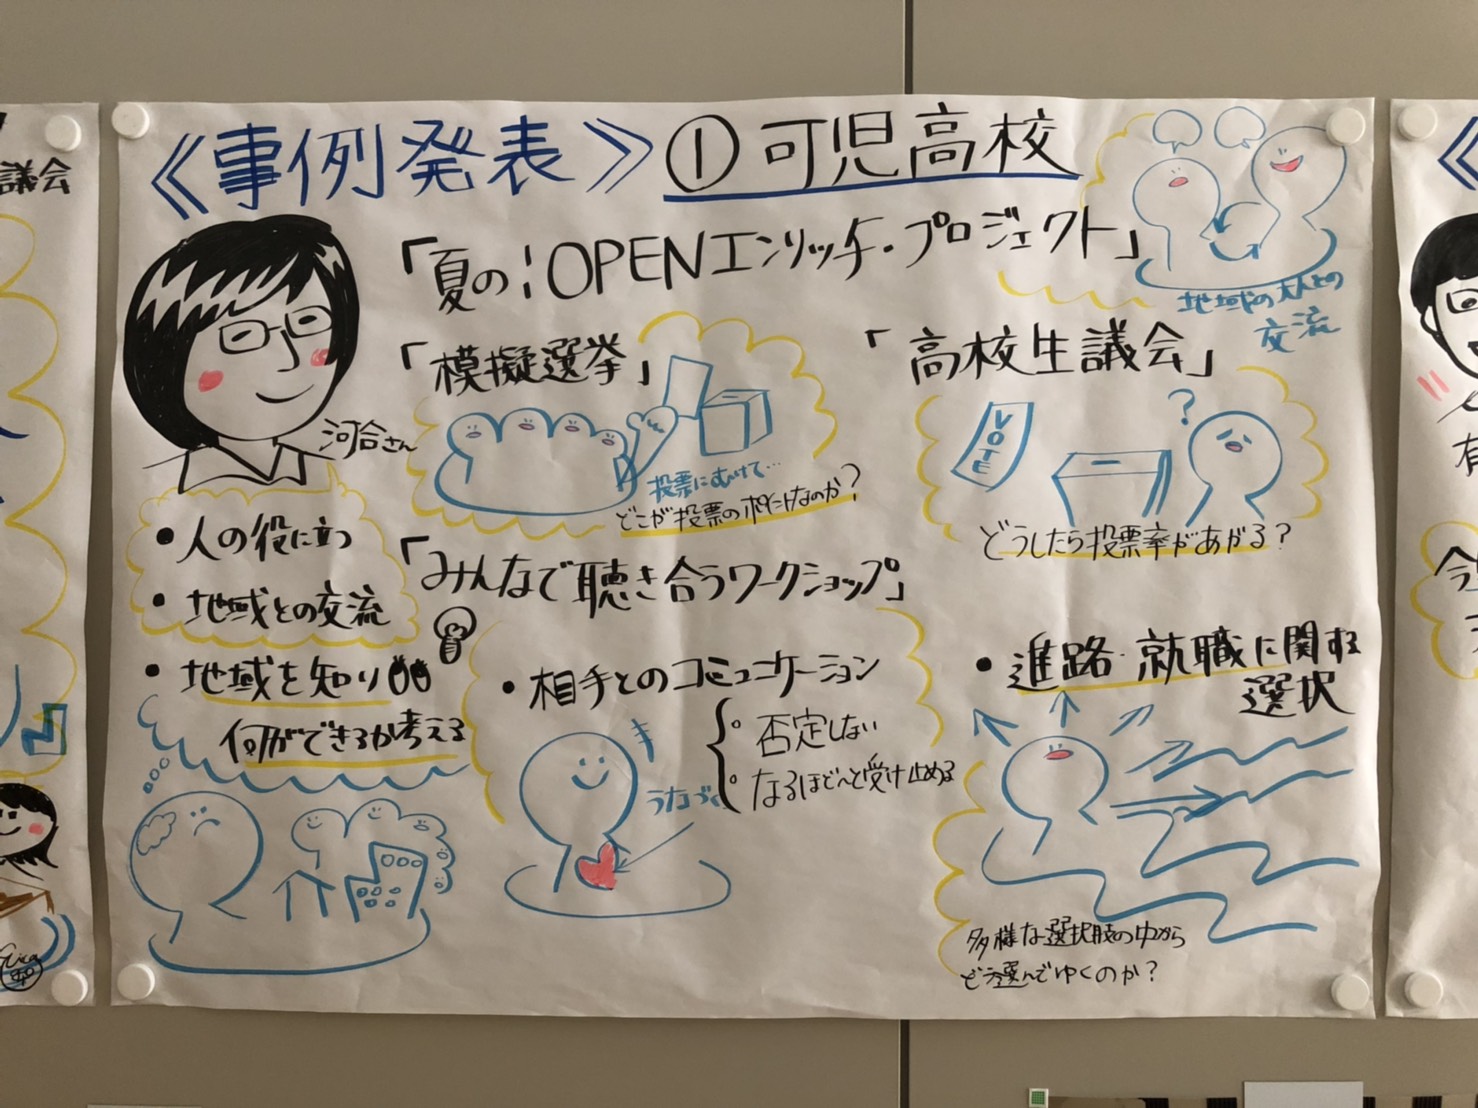 議会
《事例発表》①可児高校
「夏の!OPENエンリッチ・プロジェクト」
地域の大人との
交流
「模擬選挙」
「高校生議会」
河合さん
投票にむけて…
どこが投票のポイントなのか?
VOTE
?
どうしたら投票率があがる?
・人の役に立つ
・地域との交流
・地域を知り
何ができるか考える
「みんなで聴き合うワークショップ」
・相手とのコミュニケーション
否定しない
なるほど〜と受け止める
うなづく
・進路・就職に関する
選択
多様な選択肢の中から
どう選んでゆくのか?
有
今